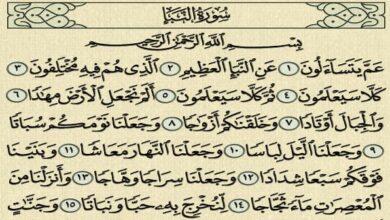 سُورَةُ النَّبَإِ
بِسْمِ اللَّهِ الرَّحْمَٰنِ الرَّحِيمِ
عَمَّ يَتَسَاءَلُونَ ١ عَنِ النَّبَإِ الْعَظِيمِ ٢ الَّذِي هُمْ فِيهِ مُخْتَلِفُونَ ٣
كَلَّا سَيَعْلَمُونَ ٤ ثُمَّ كَلَّا سَيَعْلَمُونَ ٥ أَلَمْ نَجْعَلِ الْأَرْضَ مِهَادًا ٦
وَالْجِبَالَ أَوْتَادًا ٧ وَخَلَقْنَاكُمْ أَزْوَاجًا ٨ وَجَعَلْنَا نَوْمَكُمْ سُبَاتًا
٩ وَجَعَلْنَا اللَّيْلَ لِبَاسًا ١٠ وَجَعَلْنَا النَّهَارَ مَعَاشًا ١١ وَبَنَيْنَا
فَوْقَكُمْ سَبْعًا شِدَادًا ١٢ وَجَعَلْنَا سِرَاجًا وَهَّاجًا ١٣ وَأَنزَلْنَا مِنَ
الْمُعْصِرَاتِ مَاءً ثَجَّاجًا ١٤ لِّنُخْرِجَ بِهِ حَبًّا وَنَبَاتًا ١٥ وَجَنَّاتٍ